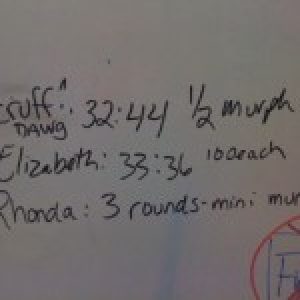 ruff: 32:44 1/2 murph
DAWG
Elizabeth: 33:36 100 each
Rhonda: 3 rounds-mini mur